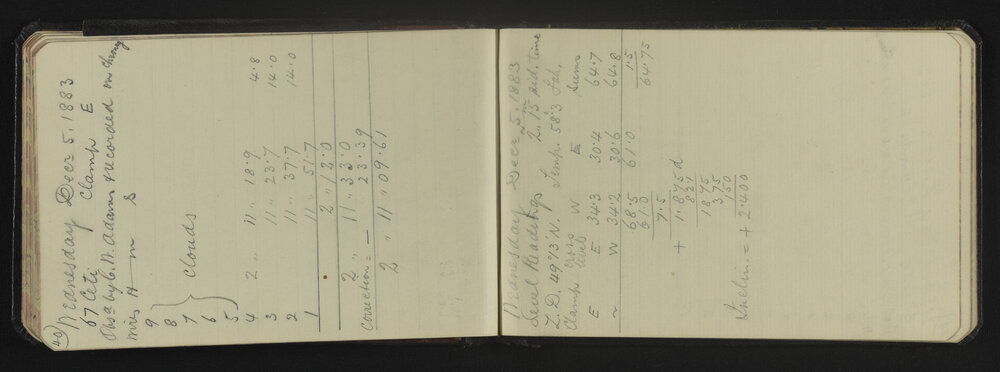 40 Wednesday Decr 5. 1883
67 Ceti Clamp E
Obsd by C. N. Adams & recorded on
wires H m S
9
8
7 Clouds
6
5
4 2 " 11 " 18.9 4.8
3 11 " 23.7 14.0
2 11 " 37.7 14.0
1 11 " 51.7
2 " 12.0
2 " 11 " 33.0
Correction = — 23.39
2 " 11 " 09.61
Wednesday Decr 5. 1883
Level Readings 2h 15m sid. time
Z. D. 49° 13' N. Temp. 58°.3 Fah.
Clamp level W E sums
E E 34.3 30.4 64.7
" W 34.2 30.6 64.8
68.5 61.0 1.5
61.0 64.75
7.5
+ 1.875 d
1875
375
150
Inclin. = + 2.400